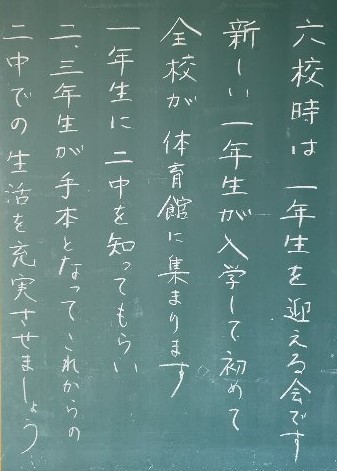 六校時は 一年生を迎える会です
新しい一年生が入学して初めて
全校が 体育館に集まります
一年生に 二中を知ってもらい
二、三年生が 手本となってこれからの
二中での 生活を充実させましょう